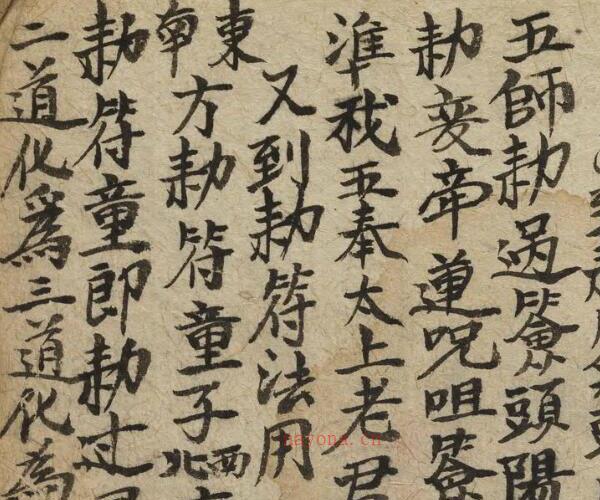 五師勅過頭陽
勅咒咀
準我五奉太上老君
又到勅符法用
東南方勅符童子西北
勅符童即勅过
二道化爲三道化爲
nayona.cn